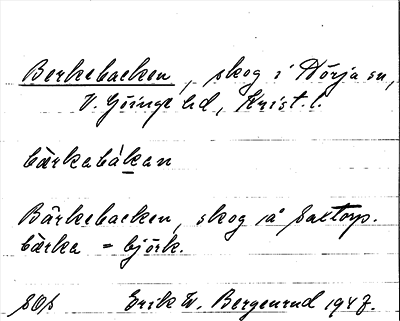 Berkebacken, skog i Nörja sn,
V. Göinge hd, Krist. l.
bærkabákan
Bärkebacken, skog på Saxtorp.
bærka = björk.
Erik W. Bergenrud 1947.